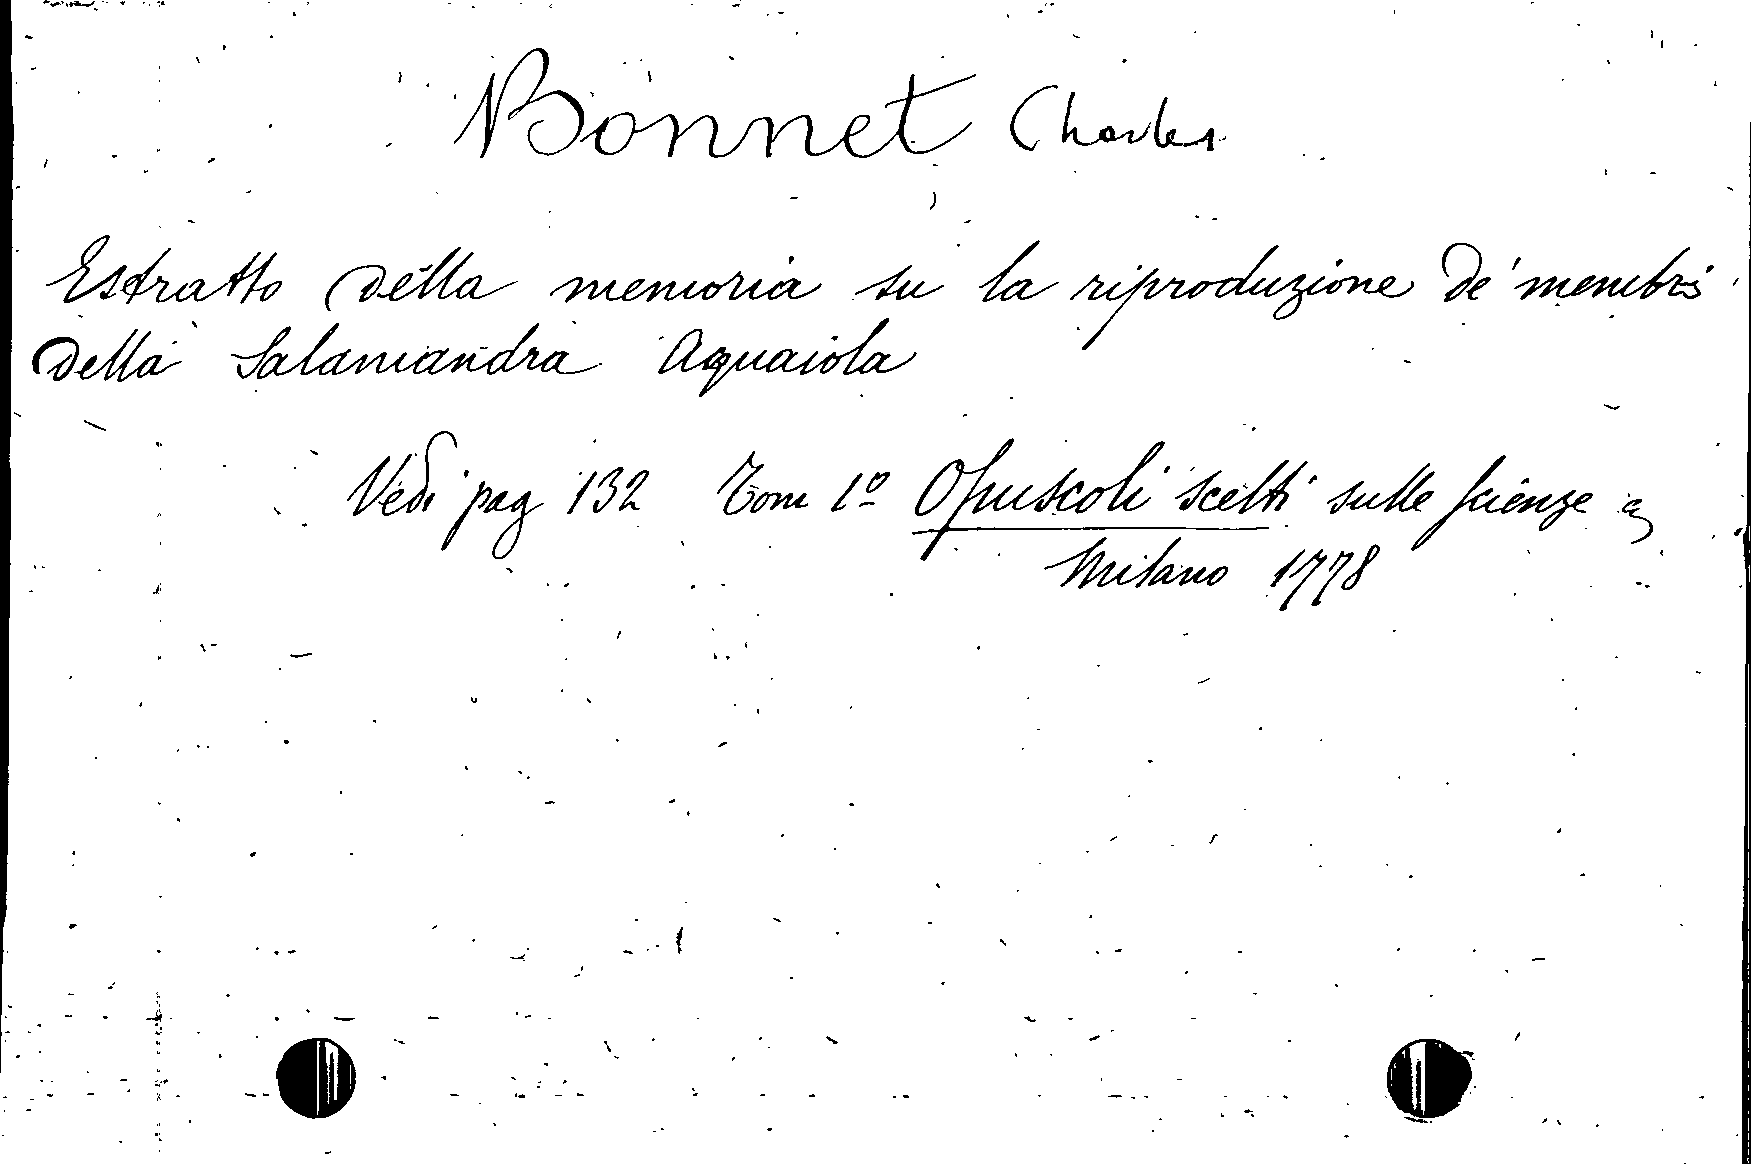 Bonnet Charles
Estratto della memoria su la riproduzione de' membri
della Salamandra Aquaiola
Vedi pag 132 Tom 1º Opuscoli scelti sulle scienze
Milano 1778